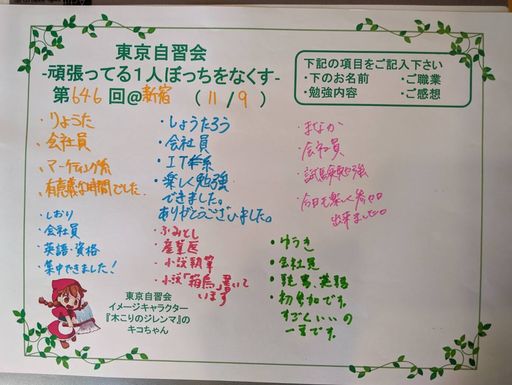 東京自習会
-頑張ってる1人ぼっちをなくす-
第646回@新宿 (11/9)
下記の項目をご記入下さい
・下のお名前 ・ご職業
・勉強内容 ・ご感想
・りょうた
・会社員
・マーケティング
有意義な時間でした
・しおり
・会社員
・英語・資格
・集中できました!
・しょうたろう
・会社員
・IT
・楽しく勉強
できました。
ありがとうございました。
・ふみとし
・産業医
・小説執筆
・小説「箱鳥」書いて
います
・まなか
・会社員
・試験勉強
・今日も楽しく
出来ました。
・ゆうき
・会社員
・英語
・初参加です。
すごくいいの
一言です。
東京自習会
イメージキャラクター
『木こりのジレンマ』の
キコちゃん